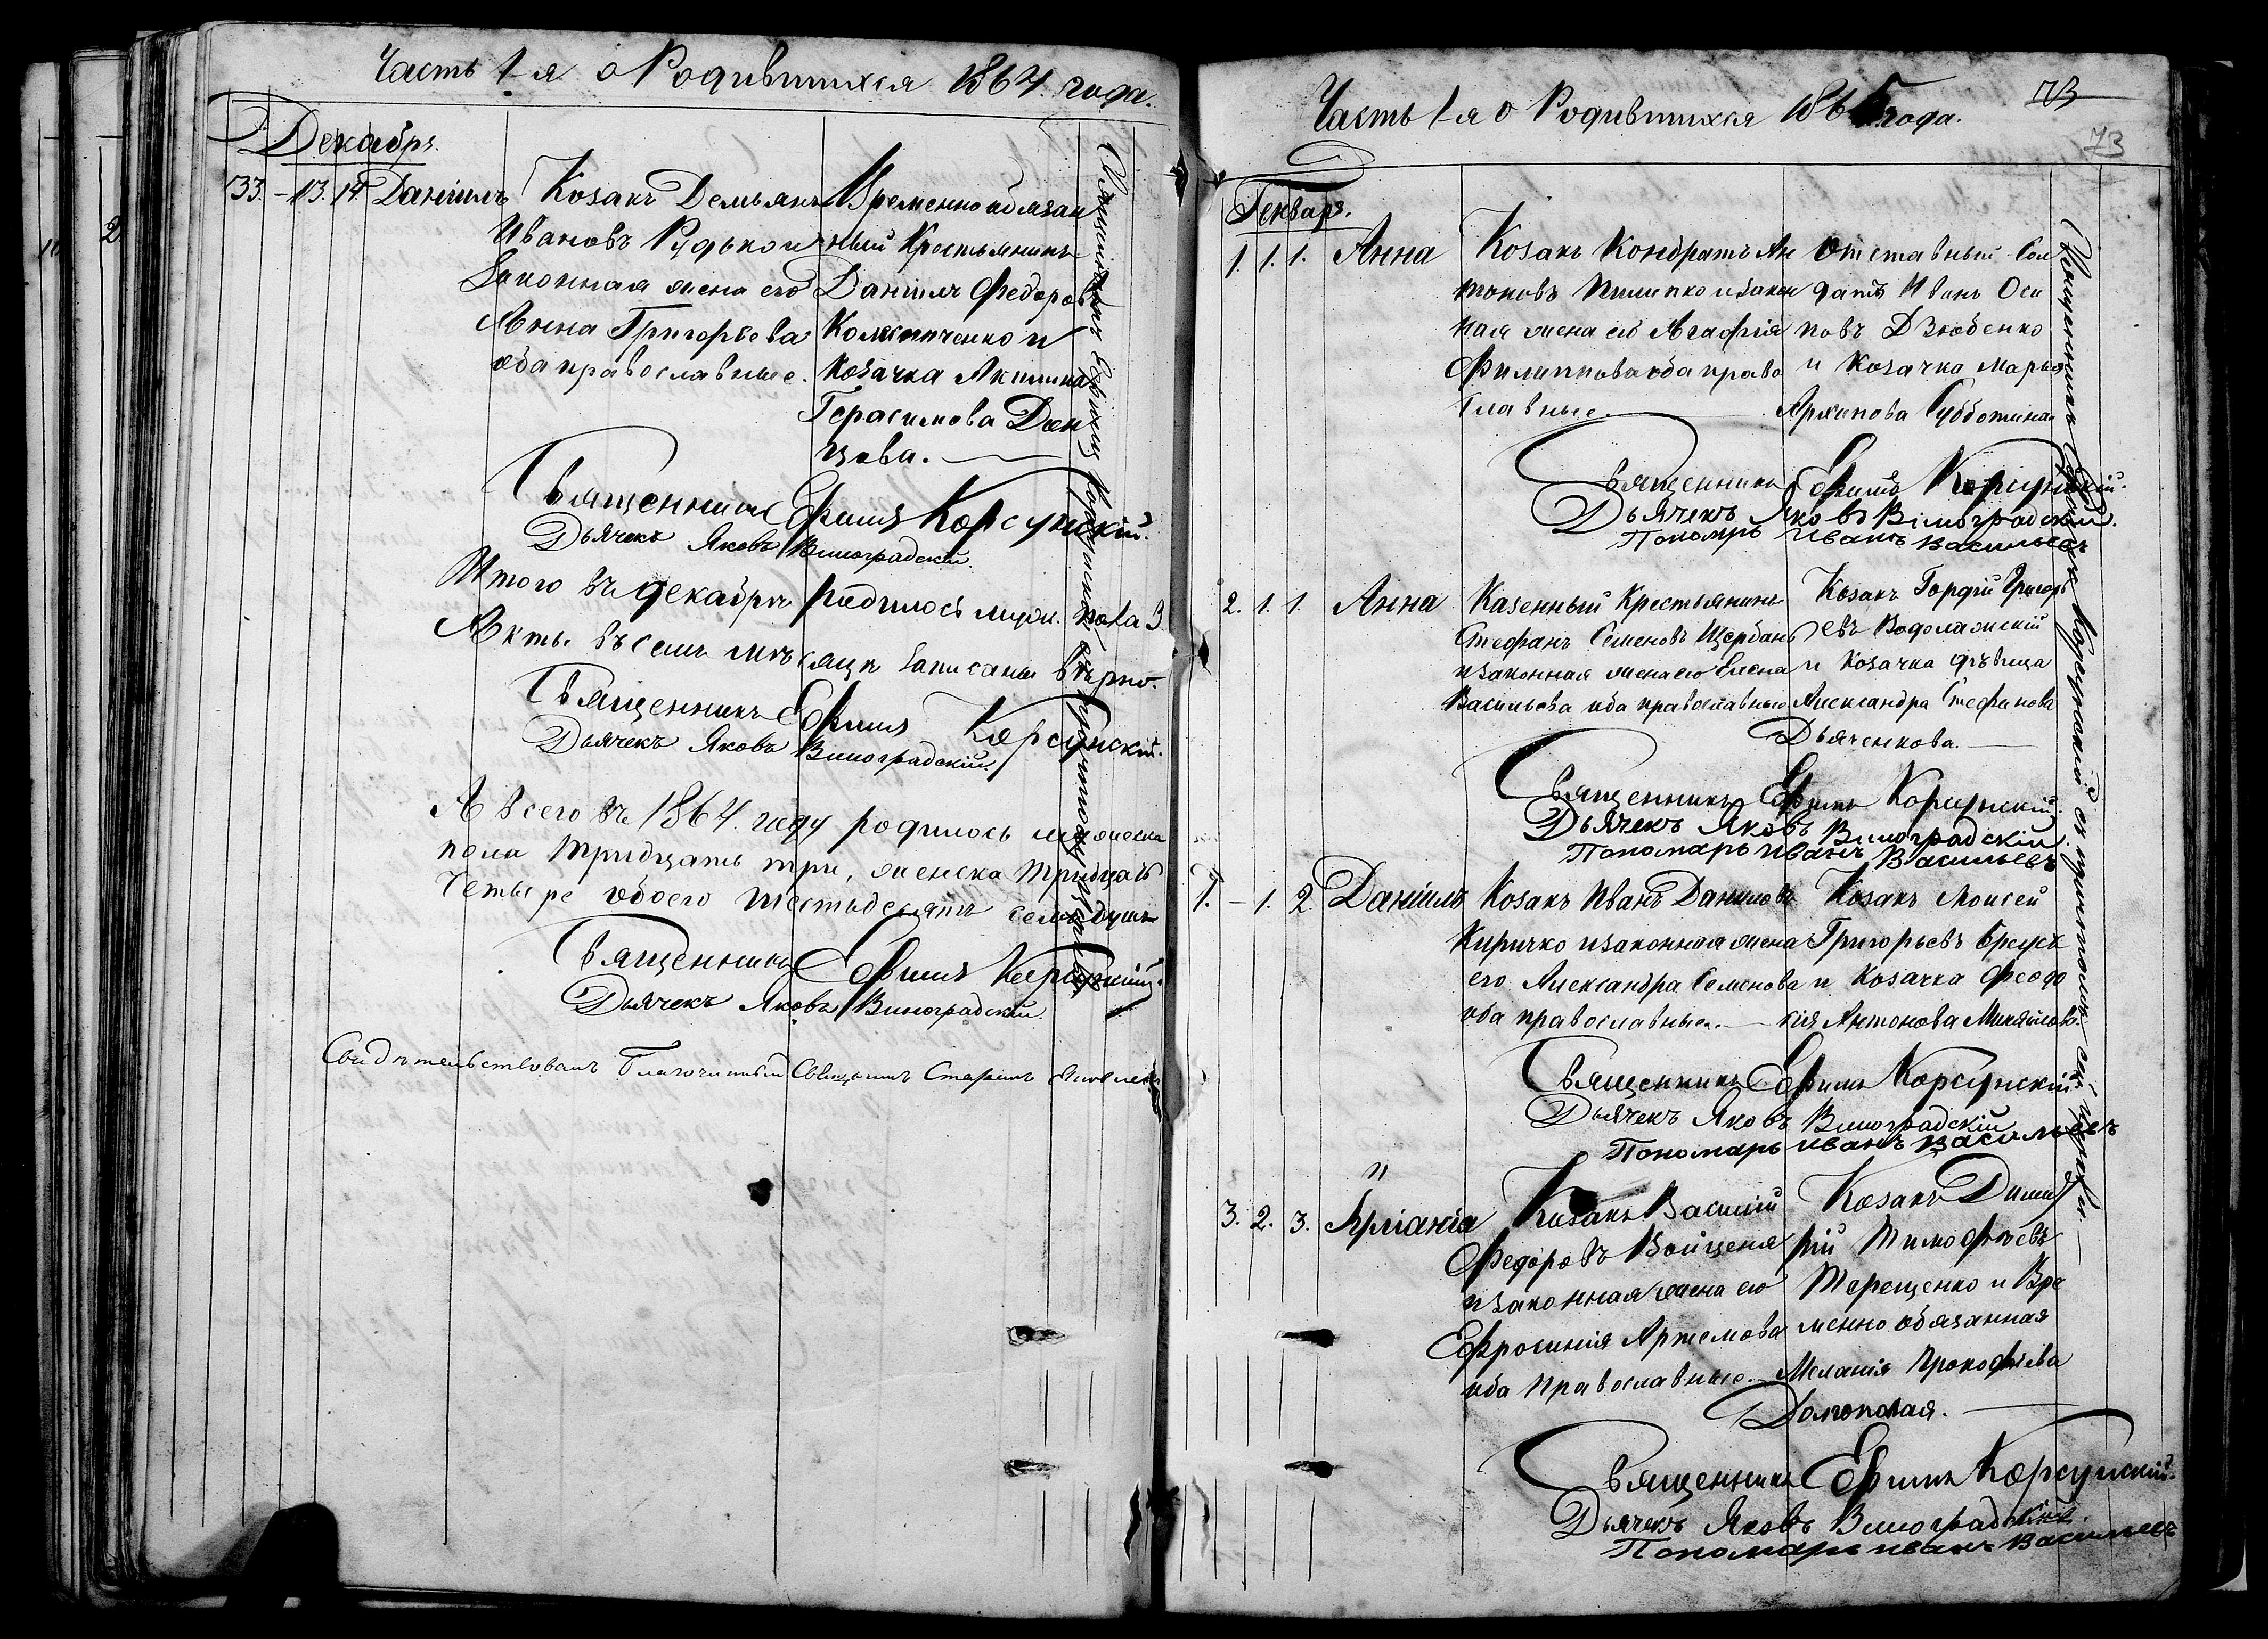 Часть 1-я о Родившихся 1864. года.
Декабрь.
33. – 13. 14. Даніилъ
Козакъ Демьянъ
Ивановъ Рудько и
Законная жена его
Анна Григорьева
оба православные.
Временно обязан
ный Крестьянинъ
Даніилъ Федоров
и
Козачка Акилина
Герасимова Дон
цова.
Священникъ Ефимъ Корсунскій.
Дьячекъ Яковъ Виноградскій.
Итого въ декабрѣ родилось муж. пола 3.
Акты въ семъ мѣсяцѣ записаны вѣрно.
Священникъ Ефимъ Корсунскій.
Дьячекъ Яковъ Виноградскій.
А всего въ 1864. году родилось мужеска
пола тридцать три, женска тридцать
четыре обоего шестьдесятъ семь душъ
Священникъ Ефимъ Корсунскій.
Дьячекъ Яковъ Виноградскій.
Свидѣтельствовалъ Благочинный
Священникъ Ефимъ Корсунскій съ причтомъ
Часть 1-я о Родившихся 1865 года.
73
73
Генварь.
1. 1. 1. Анна
Козакъ Кондратъ Ан
тоновъ Пилипко и закон
ная жена его Агафія
Филиппова оба право
славные.
Отставный Сол
датъ Иванъ Оси
повъ Дзюбенко
и Козачка Марья
Архипова Субботина
Священникъ Ефимъ Корсунскій.
Дьячекъ Яковъ Виноградскій.
Пономарь Иванъ Васильевъ
2. 1. 1. Анна
Казенный Крестьянинъ
Стефанъ Семеновъ Щербань
и законная жена его Елена
Васильева оба православные
Козакъ Гордій Григорь
евъ Водолажскій
и Козачка дѣвица
Александра Стефанова
Дьяченкова.
Священникъ Ефимъ Корсунскій.
Дьячекъ Яковъ Виноградскій.
Пономарь Иванъ Васильевъ
1. – 1. 2. Даніилъ
Козакъ Иванъ Даниловъ
Киричко и законная жена
его Александра Семенова
оба православные.
Козакъ Моисей
Григорьевъ Брусъ
и Козачка Феодо
сія Антонова Михайлова
Священникъ Ефимъ Корсунскій.
Дьячекъ Яковъ Виноградскій
Пономарь Иванъ Васильевъ
3. 2. 3.
Козакъ Василій
Федоровъ Войценя
и законная жена его
Ефросинія Артемова
оба православные.
Козакъ Димит
рій Тимофѣевъ
Терещенко и Вре
менно обязанная
Меланія Прокофіева
Долгополая.
Священникъ Ефимъ Корсунскій.
Дьячекъ Яковъ Виноградскій.
Пономарь Иванъ Васильевъ
Священникъ Ефимъ Корсунскій съ причтомъ